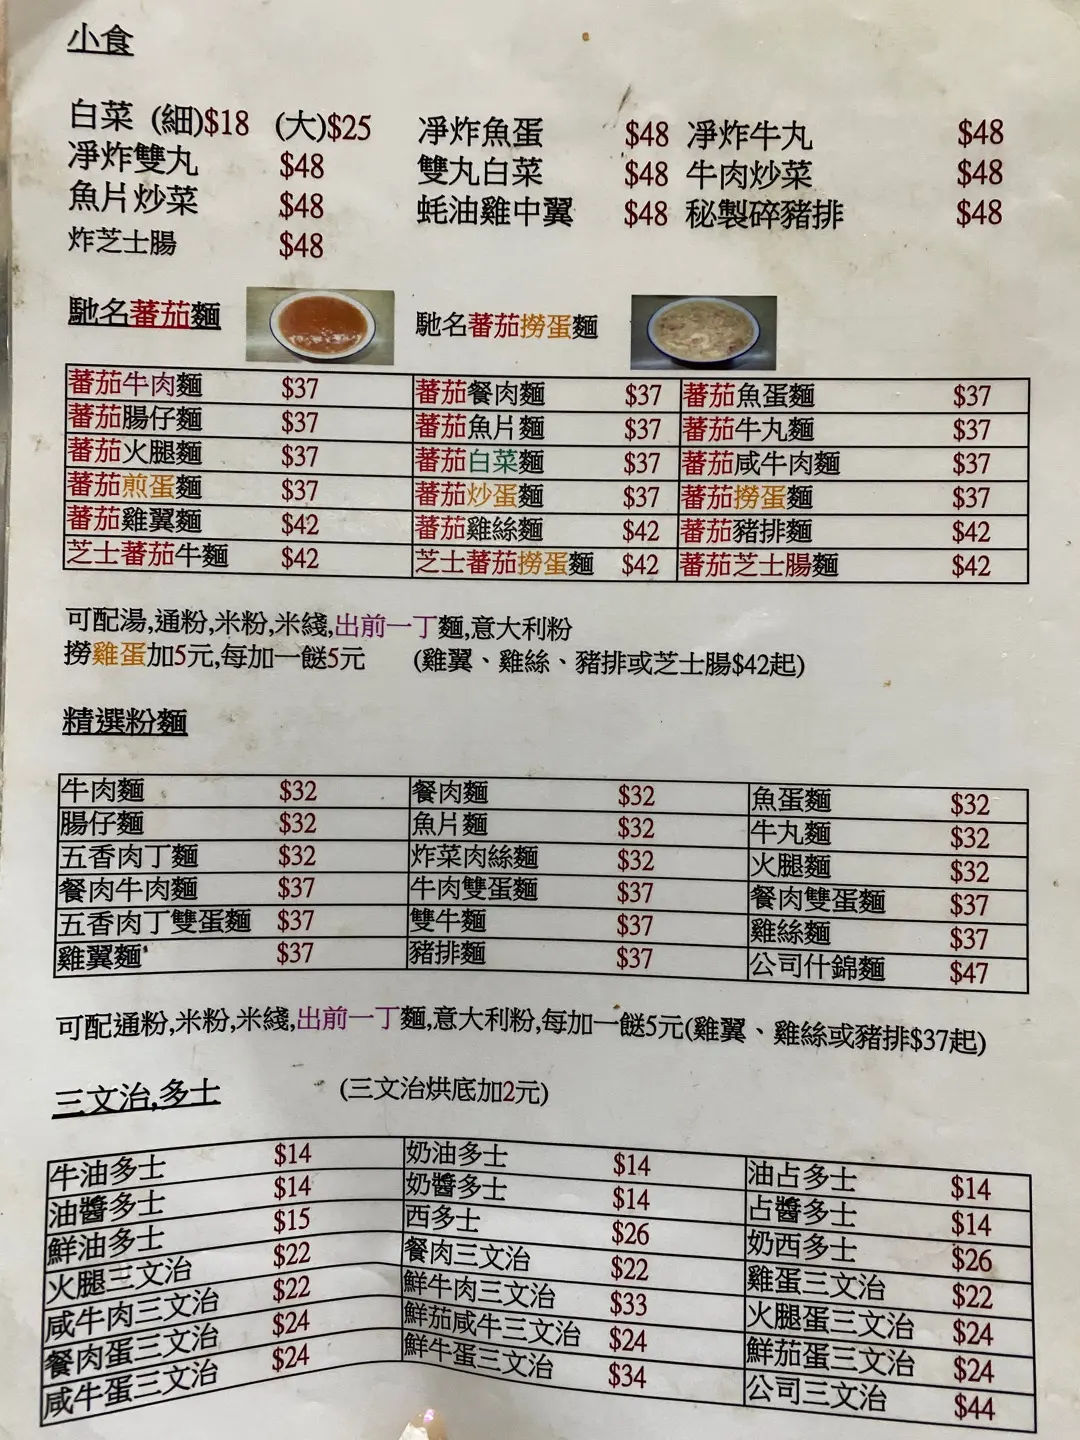 小食
白菜 (細)$18 (大)$25 淨炸魚蛋 $48 淨炸牛丸 $48
淨炸雙丸 $48 雙丸白菜 $48 牛肉炒菜 $48
魚片炒菜 $48 蚝油雞中翼 $48 秘製碎豬排 $48
炸芝士腸 $48
馳名蕃茄麵 馳名蕃茄撈蛋麵
蕃茄牛肉麵 $37 蕃茄餐肉麵 $37 蕃茄魚蛋麵 $37
蕃茄腸仔麵 $37 蕃茄魚片麵 $37 蕃茄牛丸麵 $37
蕃茄火腿麵 $37 蕃茄白菜麵 $37 蕃茄咸牛肉麵 $37
蕃茄煎蛋麵 $37 蕃茄炒蛋麵 $37 蕃茄撈蛋麵 $37
蕃茄雞翼麵 $42 蕃茄雞絲麵 $42 蕃茄豬排麵 $42
芝士蕃茄牛麵 $42 芝士蕃茄撈蛋麵 $42 蕃茄芝士腸麵 $42
可配湯,通粉,米粉,米綫,出前一丁麵,意大利粉
撈雞蛋加5元,每加一餸5元 (雞翼、雞絲、豬排或芝士腸$42起)
精選粉麵
牛肉麵 $32 餐肉麵 $32 魚蛋麵 $32
腸仔麵 $32 魚片麵 $32 牛丸麵 $32
五香肉丁麵 $32 炸菜肉絲麵 $32 火腿麵 $32
餐肉牛肉麵 $37 牛肉雙蛋麵 $37 餐肉雙蛋麵 $37
五香肉丁雙蛋麵 $37 雙牛麵 $37 雞絲麵 $37
雞翼麵 $37 豬排麵 $37 公司什錦麵 $47
可配通粉,米粉,米綫,出前一丁麵,意大利粉,每加一餸5元(雞翼、雞絲或豬排$37起)
三文治,多士 (三文治烘底加2元)
牛油多士 $14 奶油多士 $14 油占多士 $14
油醬多士 $14 奶醬多士 $14 占醬多士 $14
鮮油多士 $15 西多士 $26 奶西多士 $26
火腿三文治 $22 餐肉三文治 $22 雞蛋三文治 $22
咸牛肉三文治 $22 鮮牛肉三文治 $33 火腿蛋三文治 $24
餐肉蛋三文治 $24 鮮茄咸牛三文治 $24 鮮茄蛋三文治 $24
咸牛蛋三文治 $24 鮮牛蛋三文治 $34 公司三文治 $44